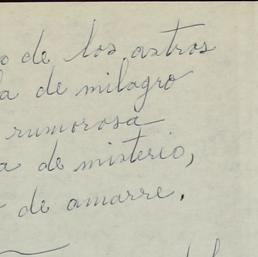 de los astros
de milagro
rumorosa
de misterio,
de amarre.